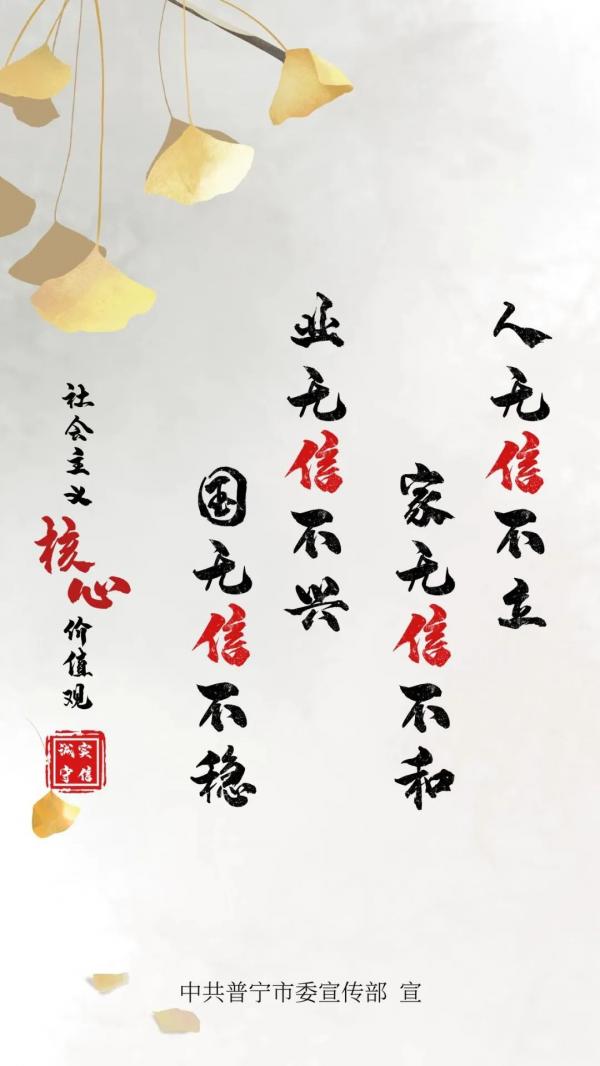 人无信不立
家无信不和
业无信不兴
国无信不稳
社会主义
核心
价值观
诚实
守信
中共普宁市委宣传部 宣